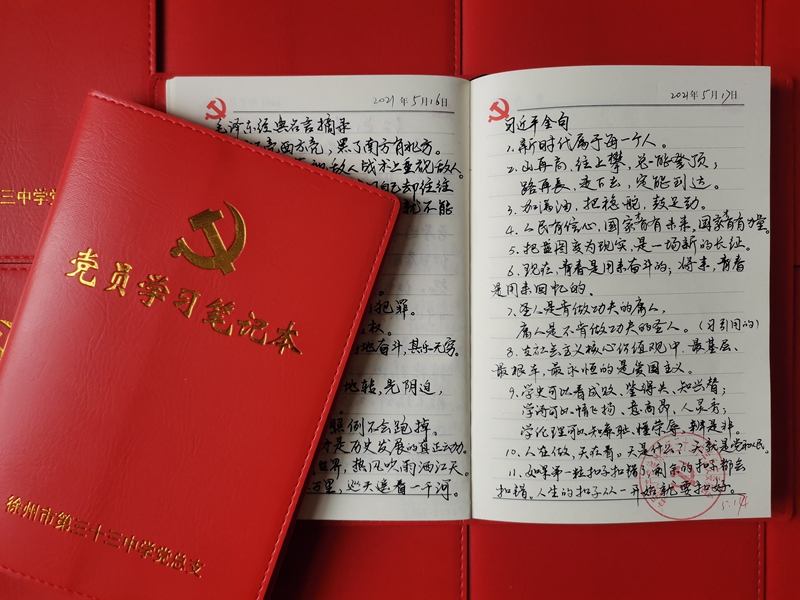 党员学习笔记本
徐州市第三十三中学党总支
三中学党
2021年5月16日
毛泽东经典名言摘录
西方亮，黑了南方有北方。
敌人战术上重视敌人。
自己却往往
就不能
犯罪。
权。
地奋斗，其乐无穷。
地转，光阴迫，
照例不会跑掉。
是历史发展的真正动力。
世界，热风吹雨洒江天。
万里，巡天遥看一千河。
2021年5月17日
习近平金句
1.新时代属于每一个人。
2.山再高，往上攀，总能登顶；
路再长，走下去，定能到达。
3.加满油，把稳舵，鼓足劲。
4.人民有信心，国家才有未来，国家才有力量。
5.把蓝图变为现实，是一场新的长征。
6.现在，青春是用来奋斗的；将来，青春
是用来回忆的。
7.圣人是肯做功夫的庸人，
庸人是不肯做功夫的圣人。（习引用的）
8.在社会主义核心价值观中，最基层、
最根本，最永恒的是爱国主义。
9.学史可以看成败、鉴得失、知兴替；
学诗可以情飞扬、意高昂、人灵秀；
学伦理可以知廉耻、懂荣辱、辨是非。
10.人在做，天在看。天是什么？天就是党和人民。
11.如果第一粒扣子扣错了，剩余的扣子都会
扣错。人生的扣子从一开始就要扣好。